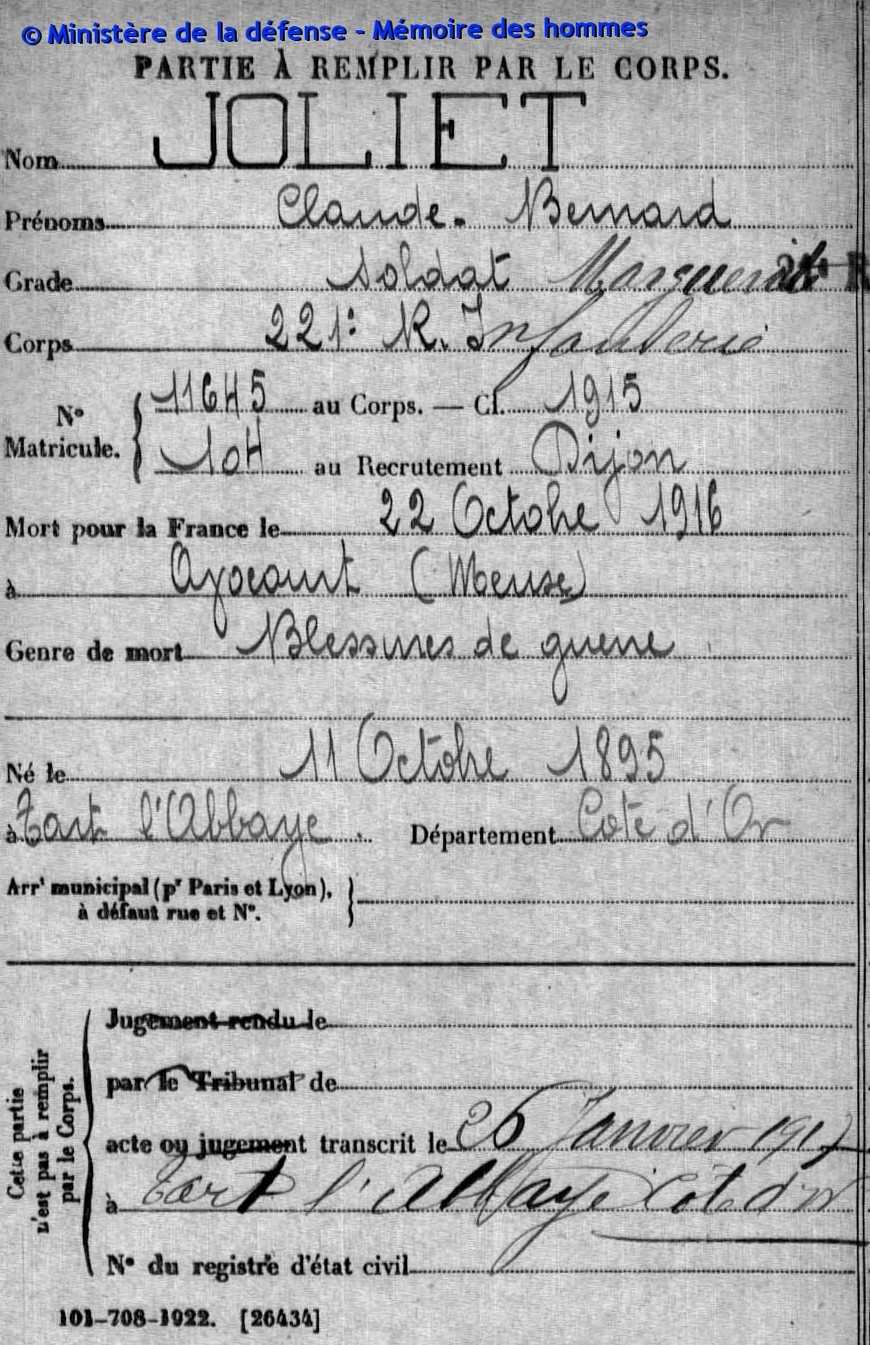 © Ministère de la défense - Mémoire des hommes
PARTIE À REMPLIR PAR LE CORPS.
Nom JOLIET
Prénoms Claude. Bernard
Grade Soldat
Corps 221e R. Infanterie
N° Matricule. 11645 au Corps. — Cl. 1915
104 au Recrutement Dijon
Mort pour la France le 22 Octobre 1916
à Avocourt (Meuse)
Genre de mort Blessures de guerre
Né le 11 Octobre 1895
à Tart l'Abbaye. Département Cote d'Or
Arrt municipal (pr Paris et Lyon),
à défaut rue et N°.
Cette partie
n'est pas à remplir
par le Corps.
Jugement rendu le
par le Tribunal de
acte ou jugement transcrit le 26 Janvier 1917
à Tart l'Abbaye Cote d'or
N° du registre d'état civil
101-708-1922. [26434]